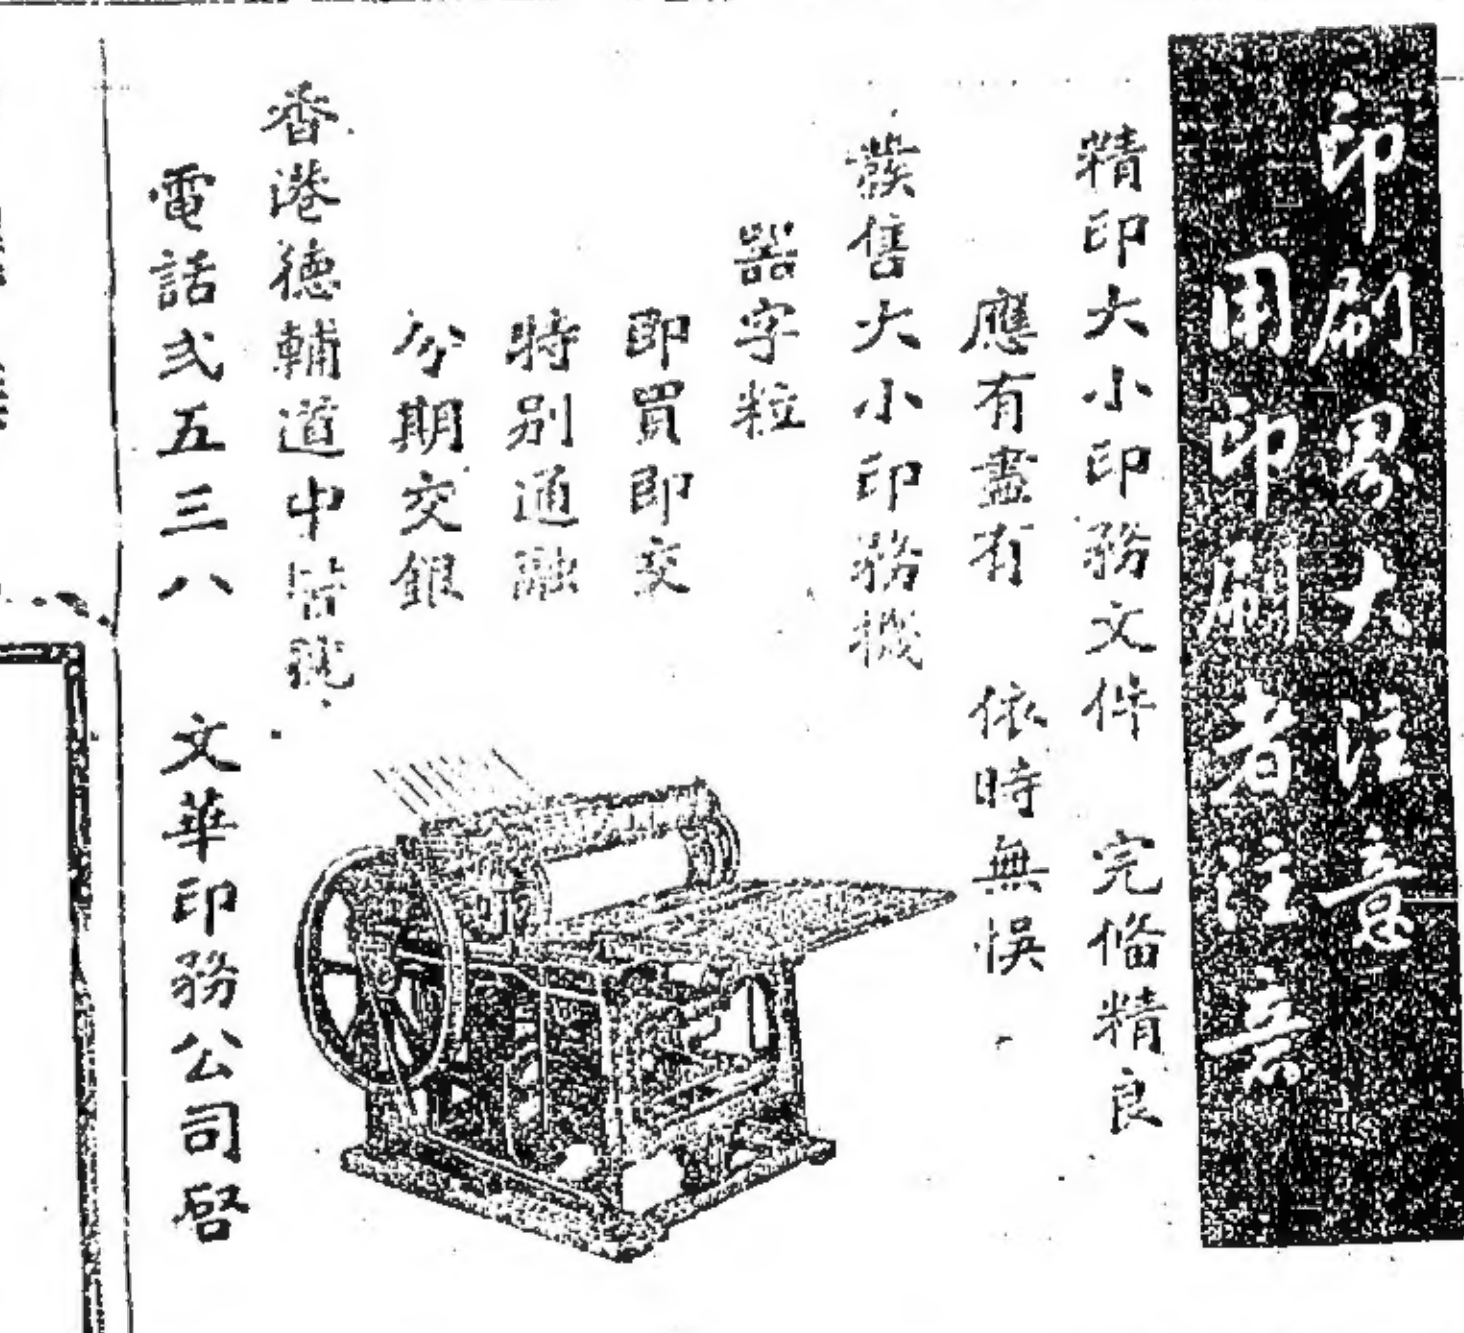 印刷界大注意
用印刷者注意
精印大小印務文件 完備精良
應有盡有 依時無悞
發售大小印務機
器字粒
即買即交
特別通融
分期交銀
香港德輔道中 號
電話弍五三八 文華印務公司啓